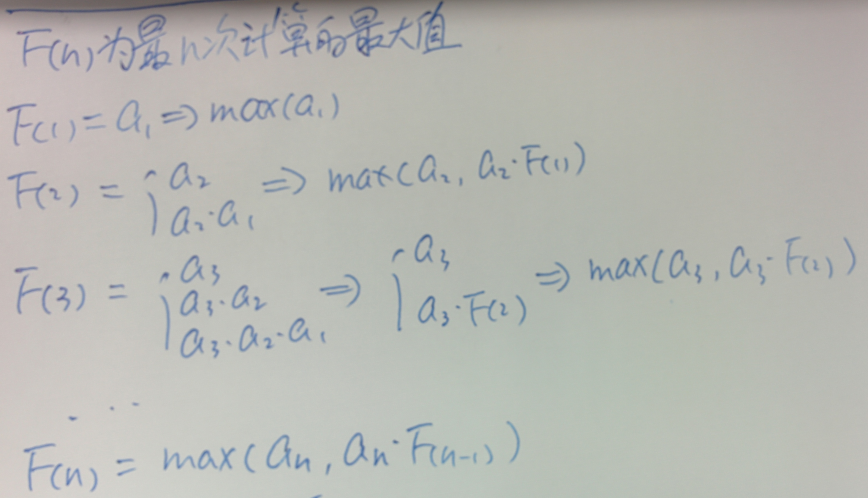 F(n)为最n次计算的最大值
F(1) = a₁ ⇒ max(a₁)
F(2) = { a₂
a₂·a₁ ⇒ max(a₂, a₂·F(1))
F(3) = { a₃
a₃·a₂
a₃·a₂·a₁ ⇒ { a₃
a₃·F(2) ⇒ max(a₃, a₃·F(2))
...
F(n) = max(aₙ, aₙ·F(n-1))